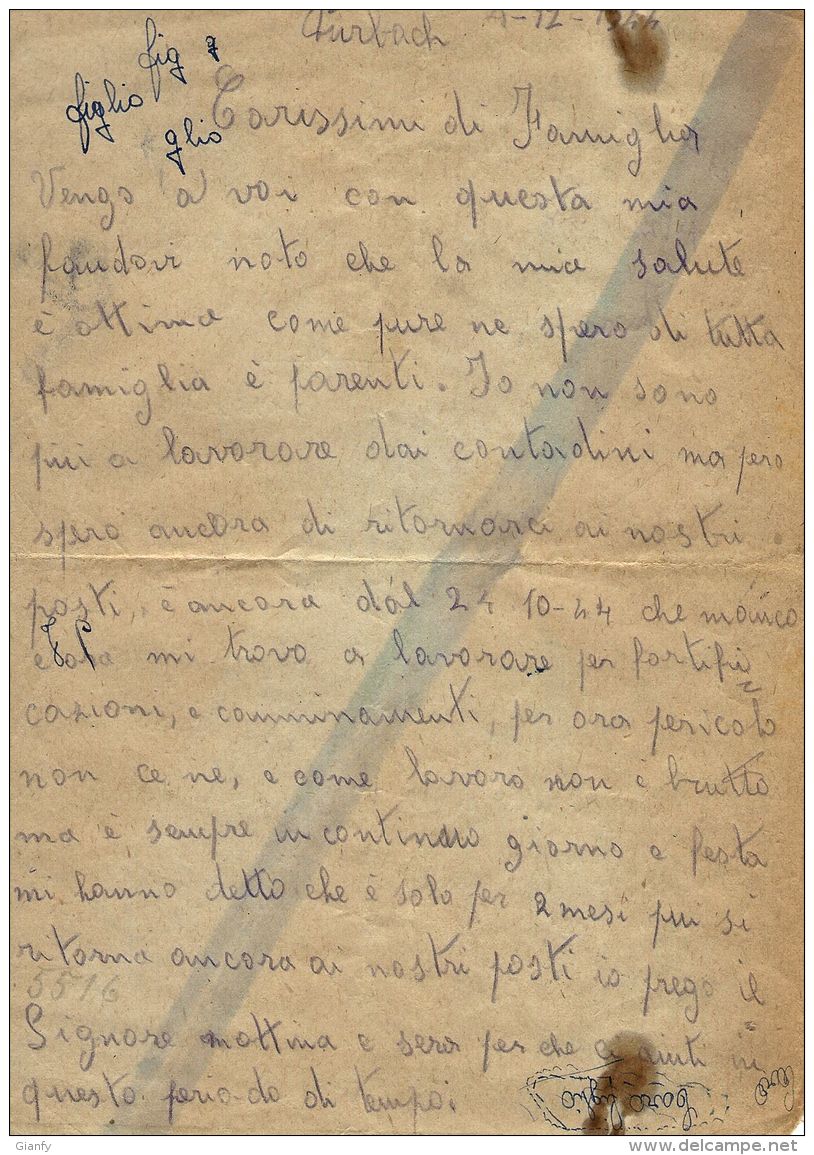 Furbach 4-12-1944
fig
figlio
glio
Carissimi di Famiglia
Vengo a voi con questa mia
faudovi noto che la mia salute
è ottima come pure ne spero di tutta
famiglia è parenti. Io non sono
piu a lavorare dai contadini ma pero
spero ancora di ritornare ai nostri
posti, è ancora dal 24 10-44 che manco
e ora mi trovo a lavorare per fortifi
cazioni, e camminamenti, per ora pericolo
non ce ne, e come lavoro non è brutto
ma è sempre in continuo giorno e festa
mi hanno detto che è solo per 2 mesi piu si
ritorna ancora ai nostri posti io prego il
5516
Signore mattina e sera per che ci aiuti in
questo periodo di tempo.
Caro figlio
Gianfy
www.delcampe.net